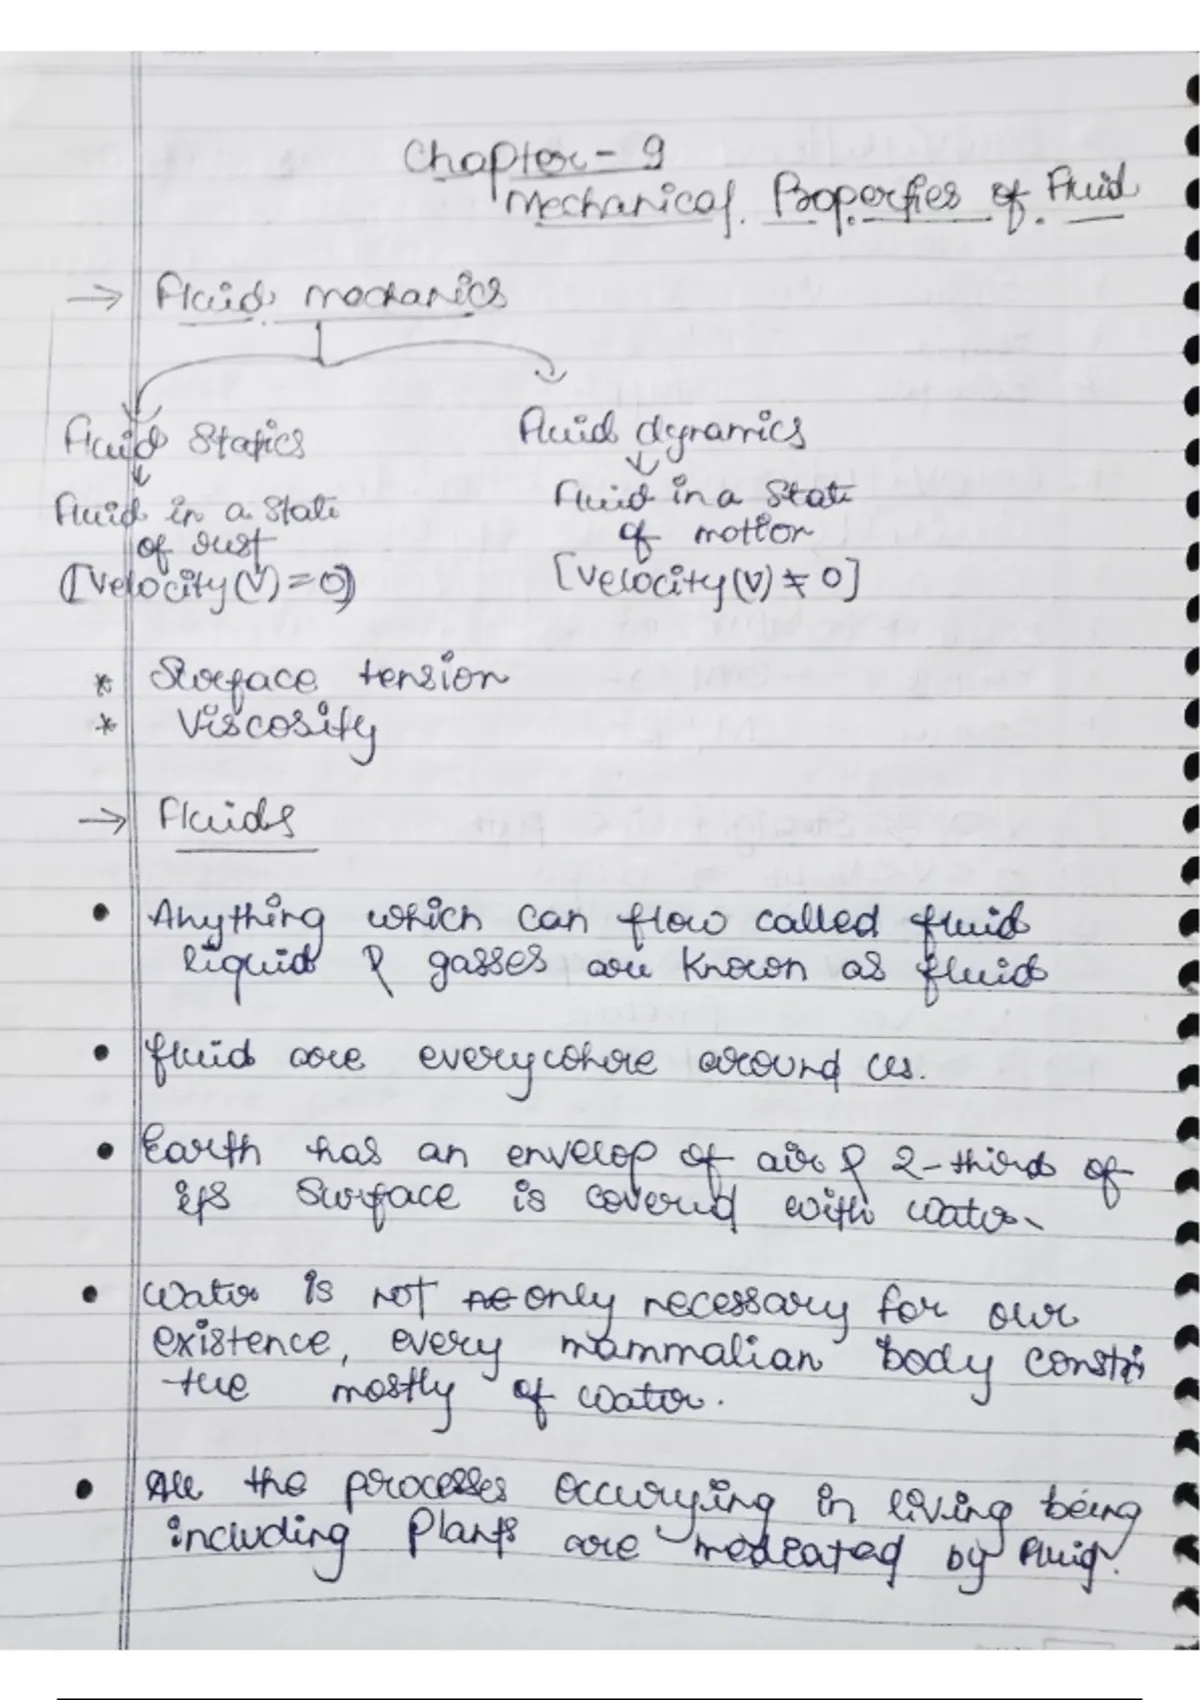 Chapter - 9
Mechanical Properties of Fluid
→ Fluid mechanics
Fluid Statics
Fluid dynamics
Fluid in a state
of rest
[Velocity (V) = 0]
Fluid in a state
of motion
[Velocity (V) ≠ 0]
* Surface tension
* Viscosity
→ Fluids
• Anything which can flow called fluid
liquid & gasses are known as fluid
• fluid are everywhere around us.
• Earth has an envelop of air & 2-third of
its surface is covered with water
• Water is not only necessary for our
existence, every mammalian body consti
tue mostly of water.
• All the processes occurying in living being
including Plants are mediated by fluid.